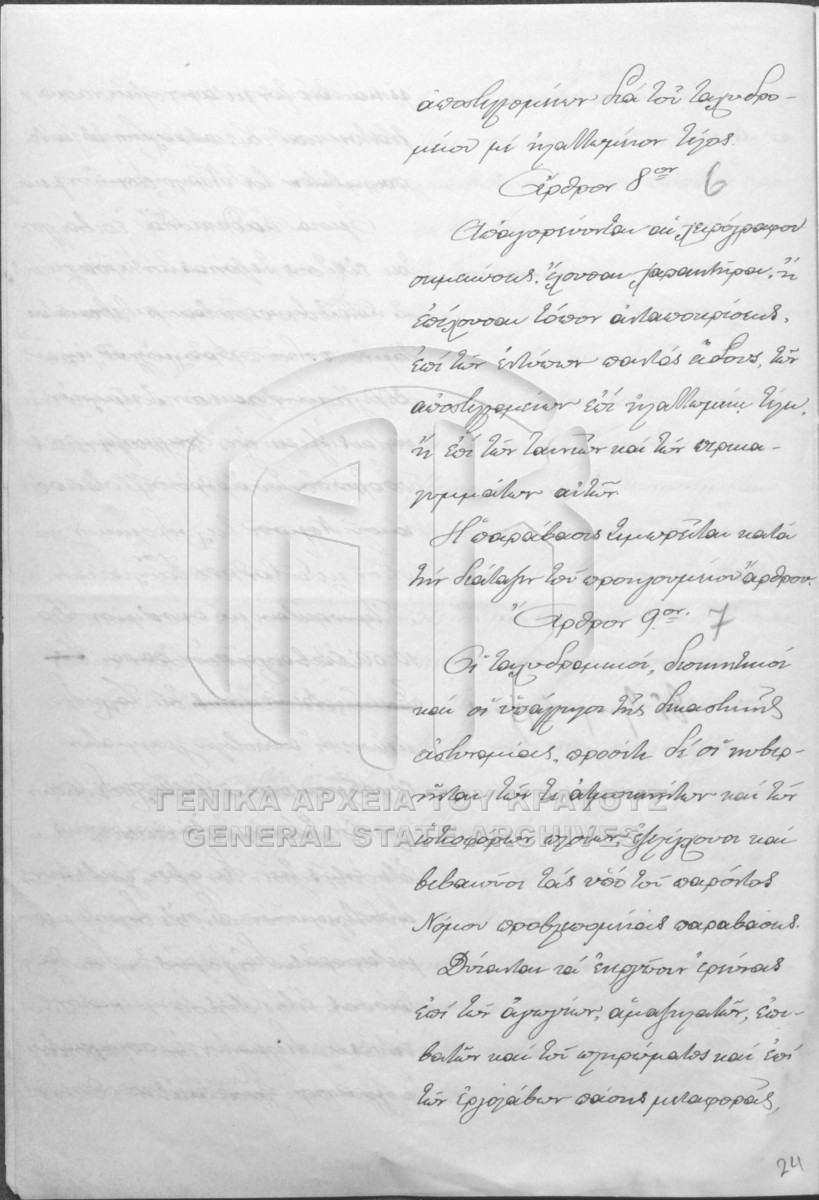 ἀποστελλομένων διὰ τοῦ ταχυδρο-
μείου μὲ ἠλαττωμένον τέλος.
Ἄρθρον 8ον 6
Ἀπαγορεύονται αἱ χειρόγραφοι
σημειώσεις, ἔχουσαι χαρακτῆρα, ἢ
ἐπέχουσαι τόπον ἀνταποκρίσεως,
ἐπὶ τῶν ἐντύπων παντὸς εἴδους, τῶν
ἀποστελλομένων ἐπὶ ἠλαττωμένῳ τέλει,
ἢ ἐπὶ τῶν ταινιῶν καὶ τῶν περικα-
λυμμάτων αὐτῶν
Ἡ παράβασις τιμωρεῖται κατὰ
τὴν διάταξιν τοῦ προηγουμένου ἄρθρου.
Ἄρθρον 9ον. 7
Οἱ ταχυδρομικοί, διοικητικοί
καὶ οἱ ὑπάλληλοι τῆς δικαστικῆς
ἀστυνομίας, προσέτι δὲ οἱ κυβερ-
νῆται τῶν τε ἀτμοκινήτων καὶ τῶν
ἱστιοφόρων πλοίων, ἐξελέγχουσι καὶ
βεβαιοῦσι τὰς ὑπὸ τοῦ παρόντος
Νόμου προβλεπομένας παραβάσεις.
Δύνανται νὰ ἐνεργῶσιν ἐρεύνας
ἐπὶ τῶν ἀγωγέων, ἁμαξηλατῶν, ἐπι-
βατῶν καὶ τοῦ πληρώματος καὶ ἐπὶ
τῶν ἐργολάβων πάσης μεταφορᾶς,
24
ΓΕΝΙΚΑ ΑΡΧΕΙΑ ΤΟΥ ΚΡΑΤΟΥΣ
GENERAL STATE ARCHIVES